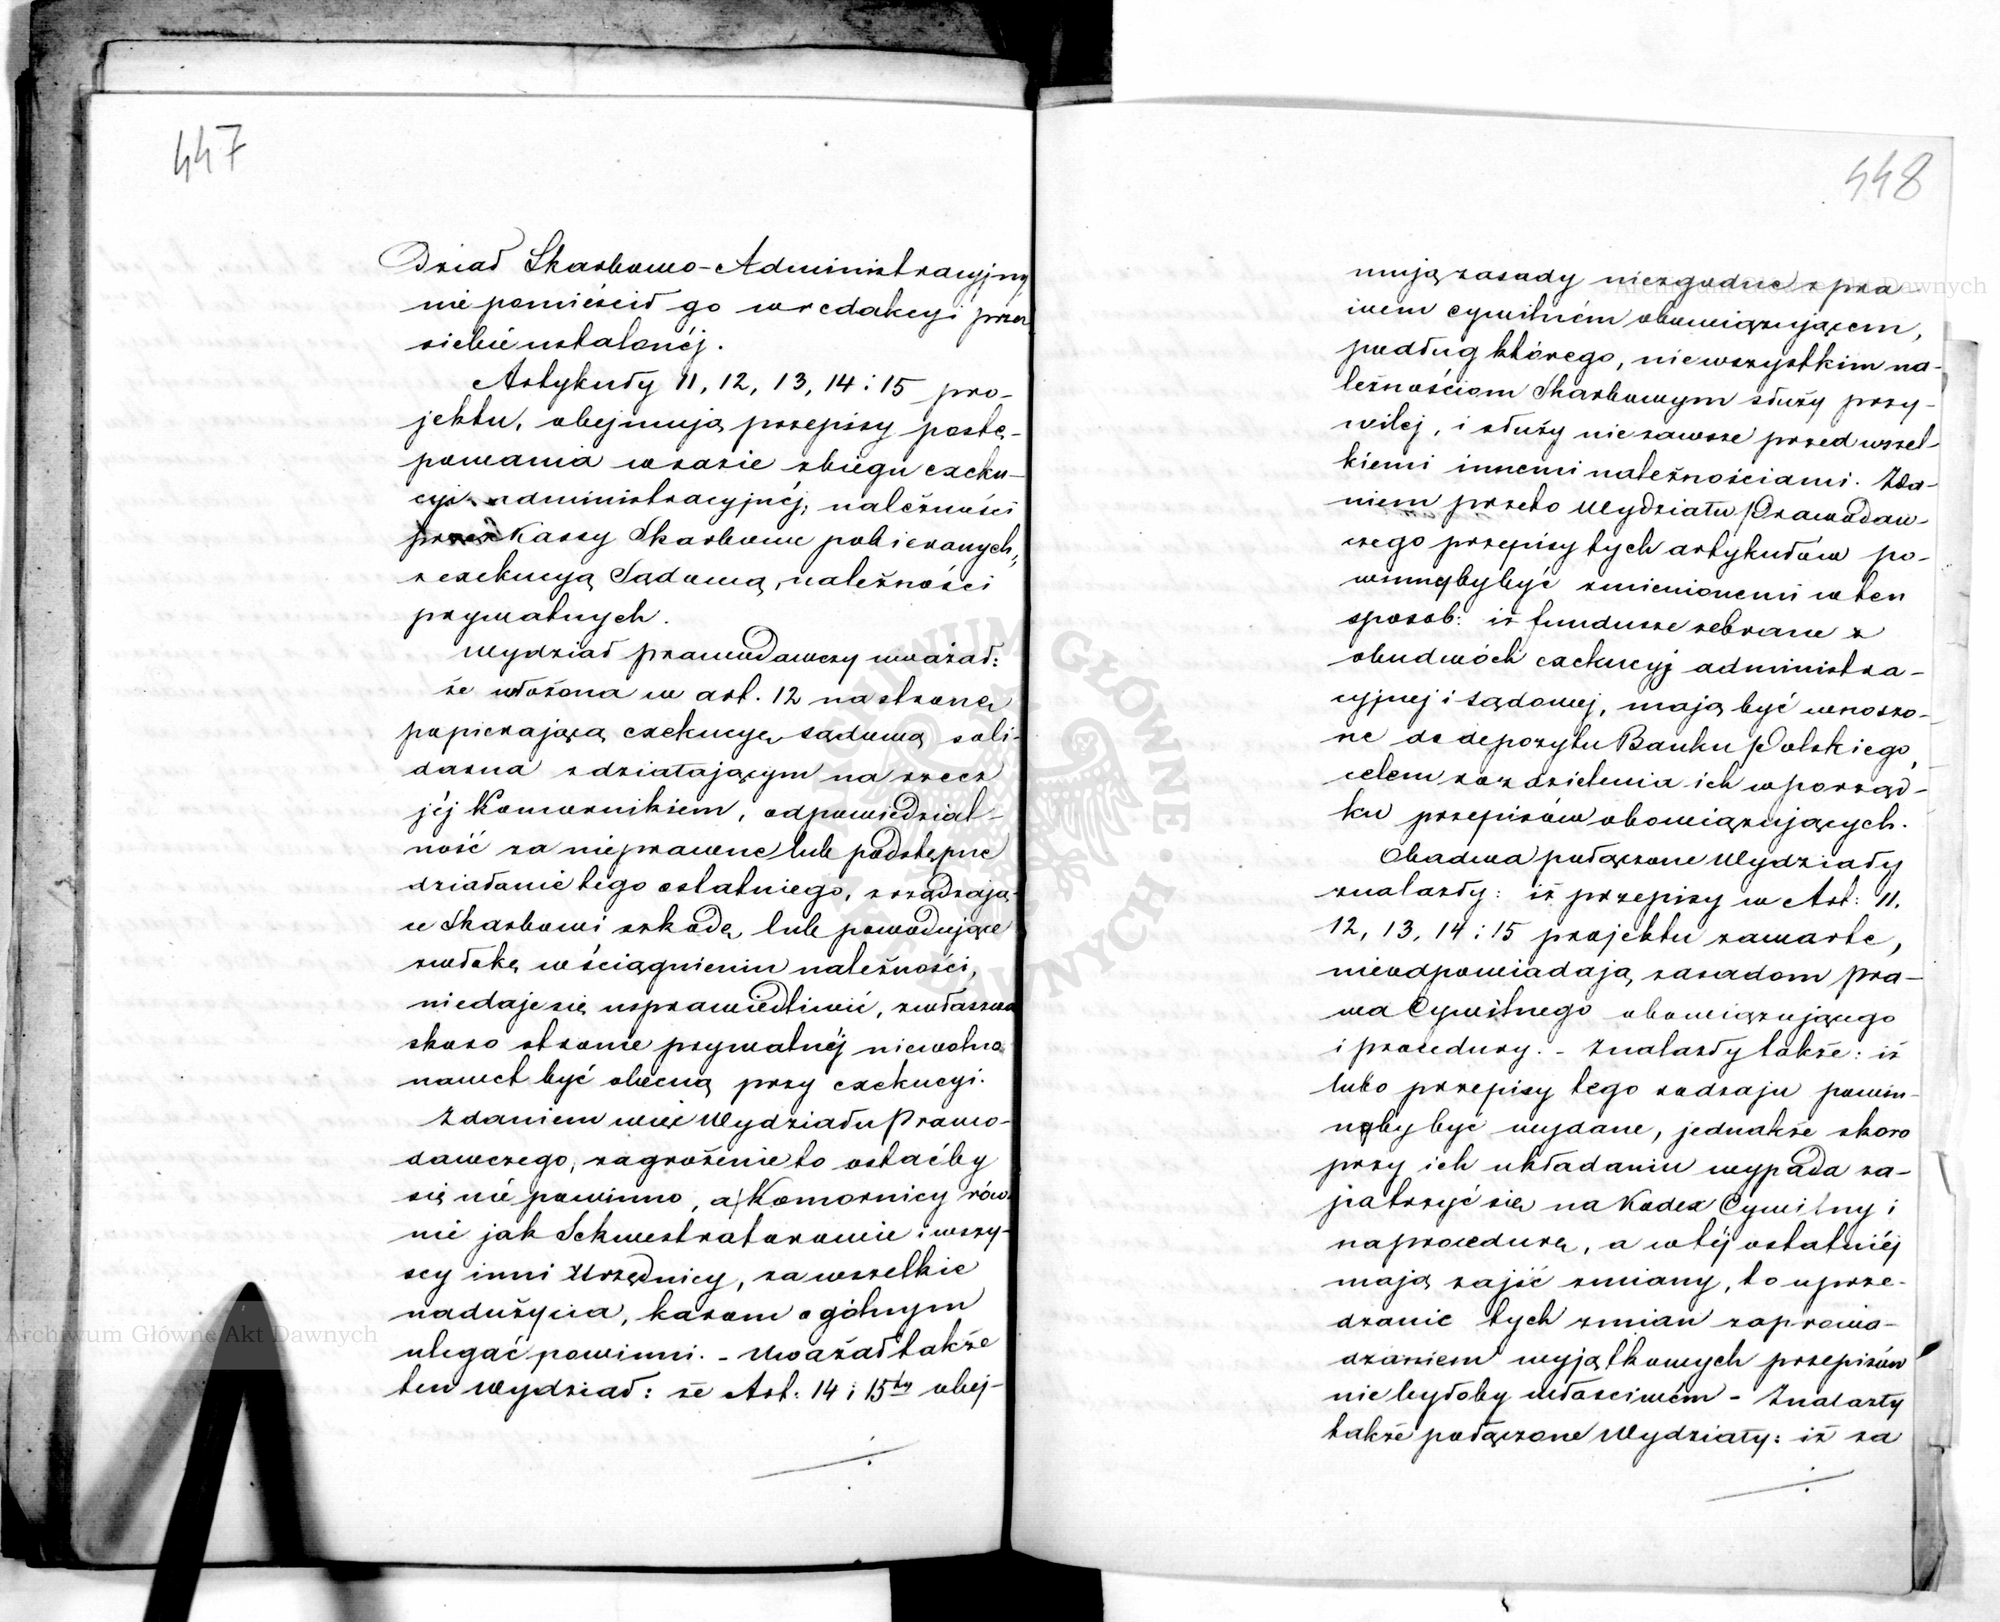 447
Dział Skarbowo-Administracyjny
nie pomieścił go w redakcyi przez
siebie ustalonéj.
Artykuły 11, 12, 13, 14 i 15 pro-
jektu, obejmują przepisy postę-
powania w razie zbiegu exeku-
cyi administracyjnéj, należności
przez Kassy Skarbowe pobieranych,
z exekucyą Sądową, należności
prywatnych.
Wydział prawodawczy uważał:
że włożona w art. 12 na stronę
popierającą exekucyę sądową soli-
darna z działającym na rzecz
jéj Komornikiem, odpowiedzial-
ność za nieprawne lub podstępne
działanie tego ostatniego, zrządzają-
ce Skarbowi szkodę, lub powodujące
zwłokę w ściągnieniu należności,
niedaje się usprawiedliwić, zwłaszcza
skoro stronie prywatnéj niewolno
nawet być obecną przy exekucyi.
Zdaniem więc Wydziału Prawo-
dawczego, zagrożenie to ostać by
się nie powinno, a Komornicy rów-
nie jak Sekwestratorowie i wszy-
scy inni Urzędnicy, za wszelkie
nadużycia, karom ogólnym
ulegać powinni. - Uważał także
ten Wydział: że Art. 14 i 15ty obej-
448
mują zasady niezgodne z pra-
wem cywilném obowiązującem,
podług którego, nie wszystkim na-
leżnościom Skarbowym służy przy-
wilej, i służy nie zawsze przed wszel-
kiemi innemi należnościami. Zda-
niem przeto Wydziału Prawodaw-
czego przepisy tych artykułów po-
winnyby być zmienionemi w ten
sposob: iż fundusze zebrane z
obudwóch exekucyj administra-
cyjnej i sądowej, mają być wnoszo-
ne do depozytu Banku Polskiego,
celem rozdzielenia ich w porząd-
ku przepisów obowiązujących.
Obadwa połączone Wydziały
znalazły: iż przepisy w Art: 11,
12, 13, 14 i 15 projektu zawarte,
nieodpowiadają zasadom pra-
wa Cywilnego obowiązującego
i procedury. - Znalazły także: iż
lubo przepisy tego rodzaju powin-
nyby być wydane, jednakże skoro
przy ich układaniu wypada za-
patrzyć się na Kodex Cywilny i
na procedurę, a w téj ostatniéj
mają zajść zmiany, to uprze-
dzanie tych zmian zaprowa-
dzaniem wyjątkowych przepisów
nie byłoby właściwém - Znalazły
także połączone Wydziały: iż za
Archiwum Główne Akt Dawnych
Archiwum Główne Akt Dawnych
ARCHIWUM GŁÓWNE AKT DAWNYCH